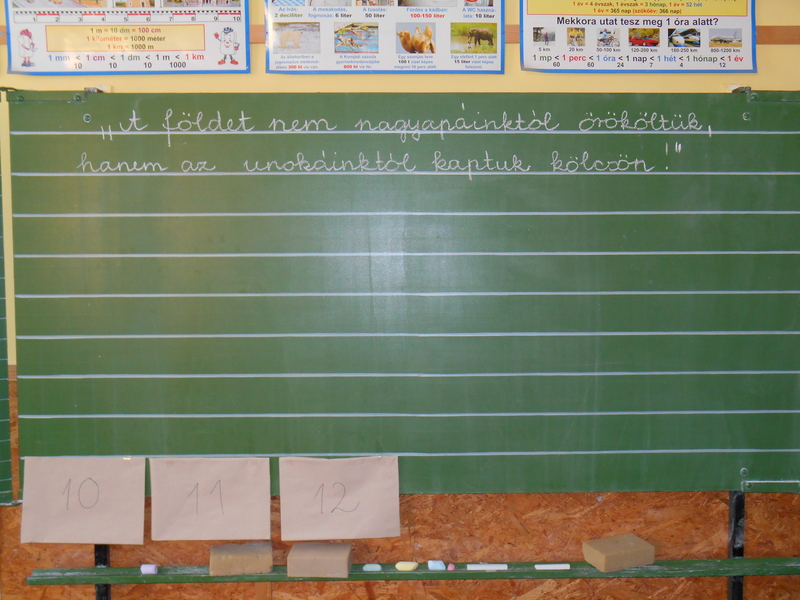 1 m = 10 dm = 100 cm
1 kilométer = 1000 méter
1 km = 1000 m
1 mm < 1 cm < 1 dm < 1 m < 1 km
10 10 10 1000
2 deciliter
6 liter
50 liter
Fürdés a kádban
100-150 liter
10 liter
1 év = 4 évszak, 1 évszak = 3 hónap, 1 év = 52 hét
1 év = 365 nap (szökőév: 366 nap)
Mekkora utat tesz meg 1 óra alatt?
5 km 20 km 50-100 km 120-200 km 180-250 km 800-1200 km
1 mp < 1 perc < 1 óra < 1 nap < 1 hét < 1 hónap < 1 év
60 60 24 7 4 12
„A földet nem nagyapáinktól örököltük,
hanem az unokáinktól kaptuk kölcsön!"
10 11 12